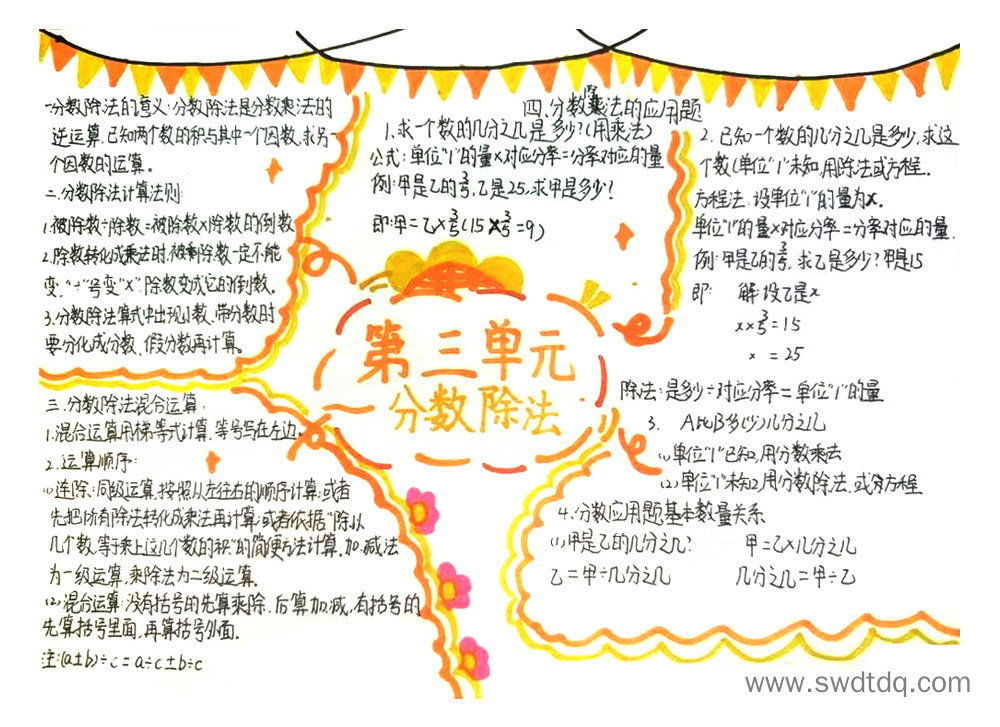 一.分数除法的意义:分数除法是分数乘法的
逆运算.已知两个数的积与其中一个因数,求另一
个因数的运算。
二.分数除法计算法则:
1.被除数÷除数=被除数×除数的倒数
2.除数转化成乘法时,被剩除数一定不能
变,“÷”号变“×”,除数变成它的倒数。
3.分数除法算式中出现小数、带分数时
要分化成分数、假分数再计算。
三.分数除法混合运算:
1.混合运算用梯等式计算,等号写在左边。
2.运算顺序:
(1)连除:同级运算,按照从左往右的顺序计算;或者
先把所有除法转化成乘法再计算;或者依据“除以
几个数,等于乘上这几个数的积”的简便方法计算.加.减法
为一级运算.乘除法为二级运算。
(2)混合运算:没有括号的先算乘除,后算加.减,有括号的
先算括号里面,再算括号外面.
注:(a±b)÷c=a÷c±b÷c
第三单元
分数除法
四.分数除法的应用题
1.求一个数的几分之几是多少?(用乘法)
公式:单位“1”的量×对应分率=分率对应的量
例:甲是乙的3/5,乙是25,求甲是多少?
即:甲=乙×3/5(15×3/5=9)
2.已知一个数的几分之几是多少,求这
个数(单位“1”未知,用除法或方程.
方程法:设单位“1”的量为x.
单位“1”的量×对应分率=分率对应的量.
例:甲是乙的3/5,求乙是多少?甲是15
即: 解:设乙是x
x×3/5=15
x=25
除法:是多少÷对应分率=单位“1”的量
3. A比B多(少)几分之几
(1)单位“1”已知,用分数乘去
(2)单位“1”未知,用分数除法.或方程
4.分数应用题基本数量关系
(1)甲是乙的几分之几? 甲=乙×几分之几
乙=甲÷几分之几 几分之几=甲÷乙
www.swdtdq.com